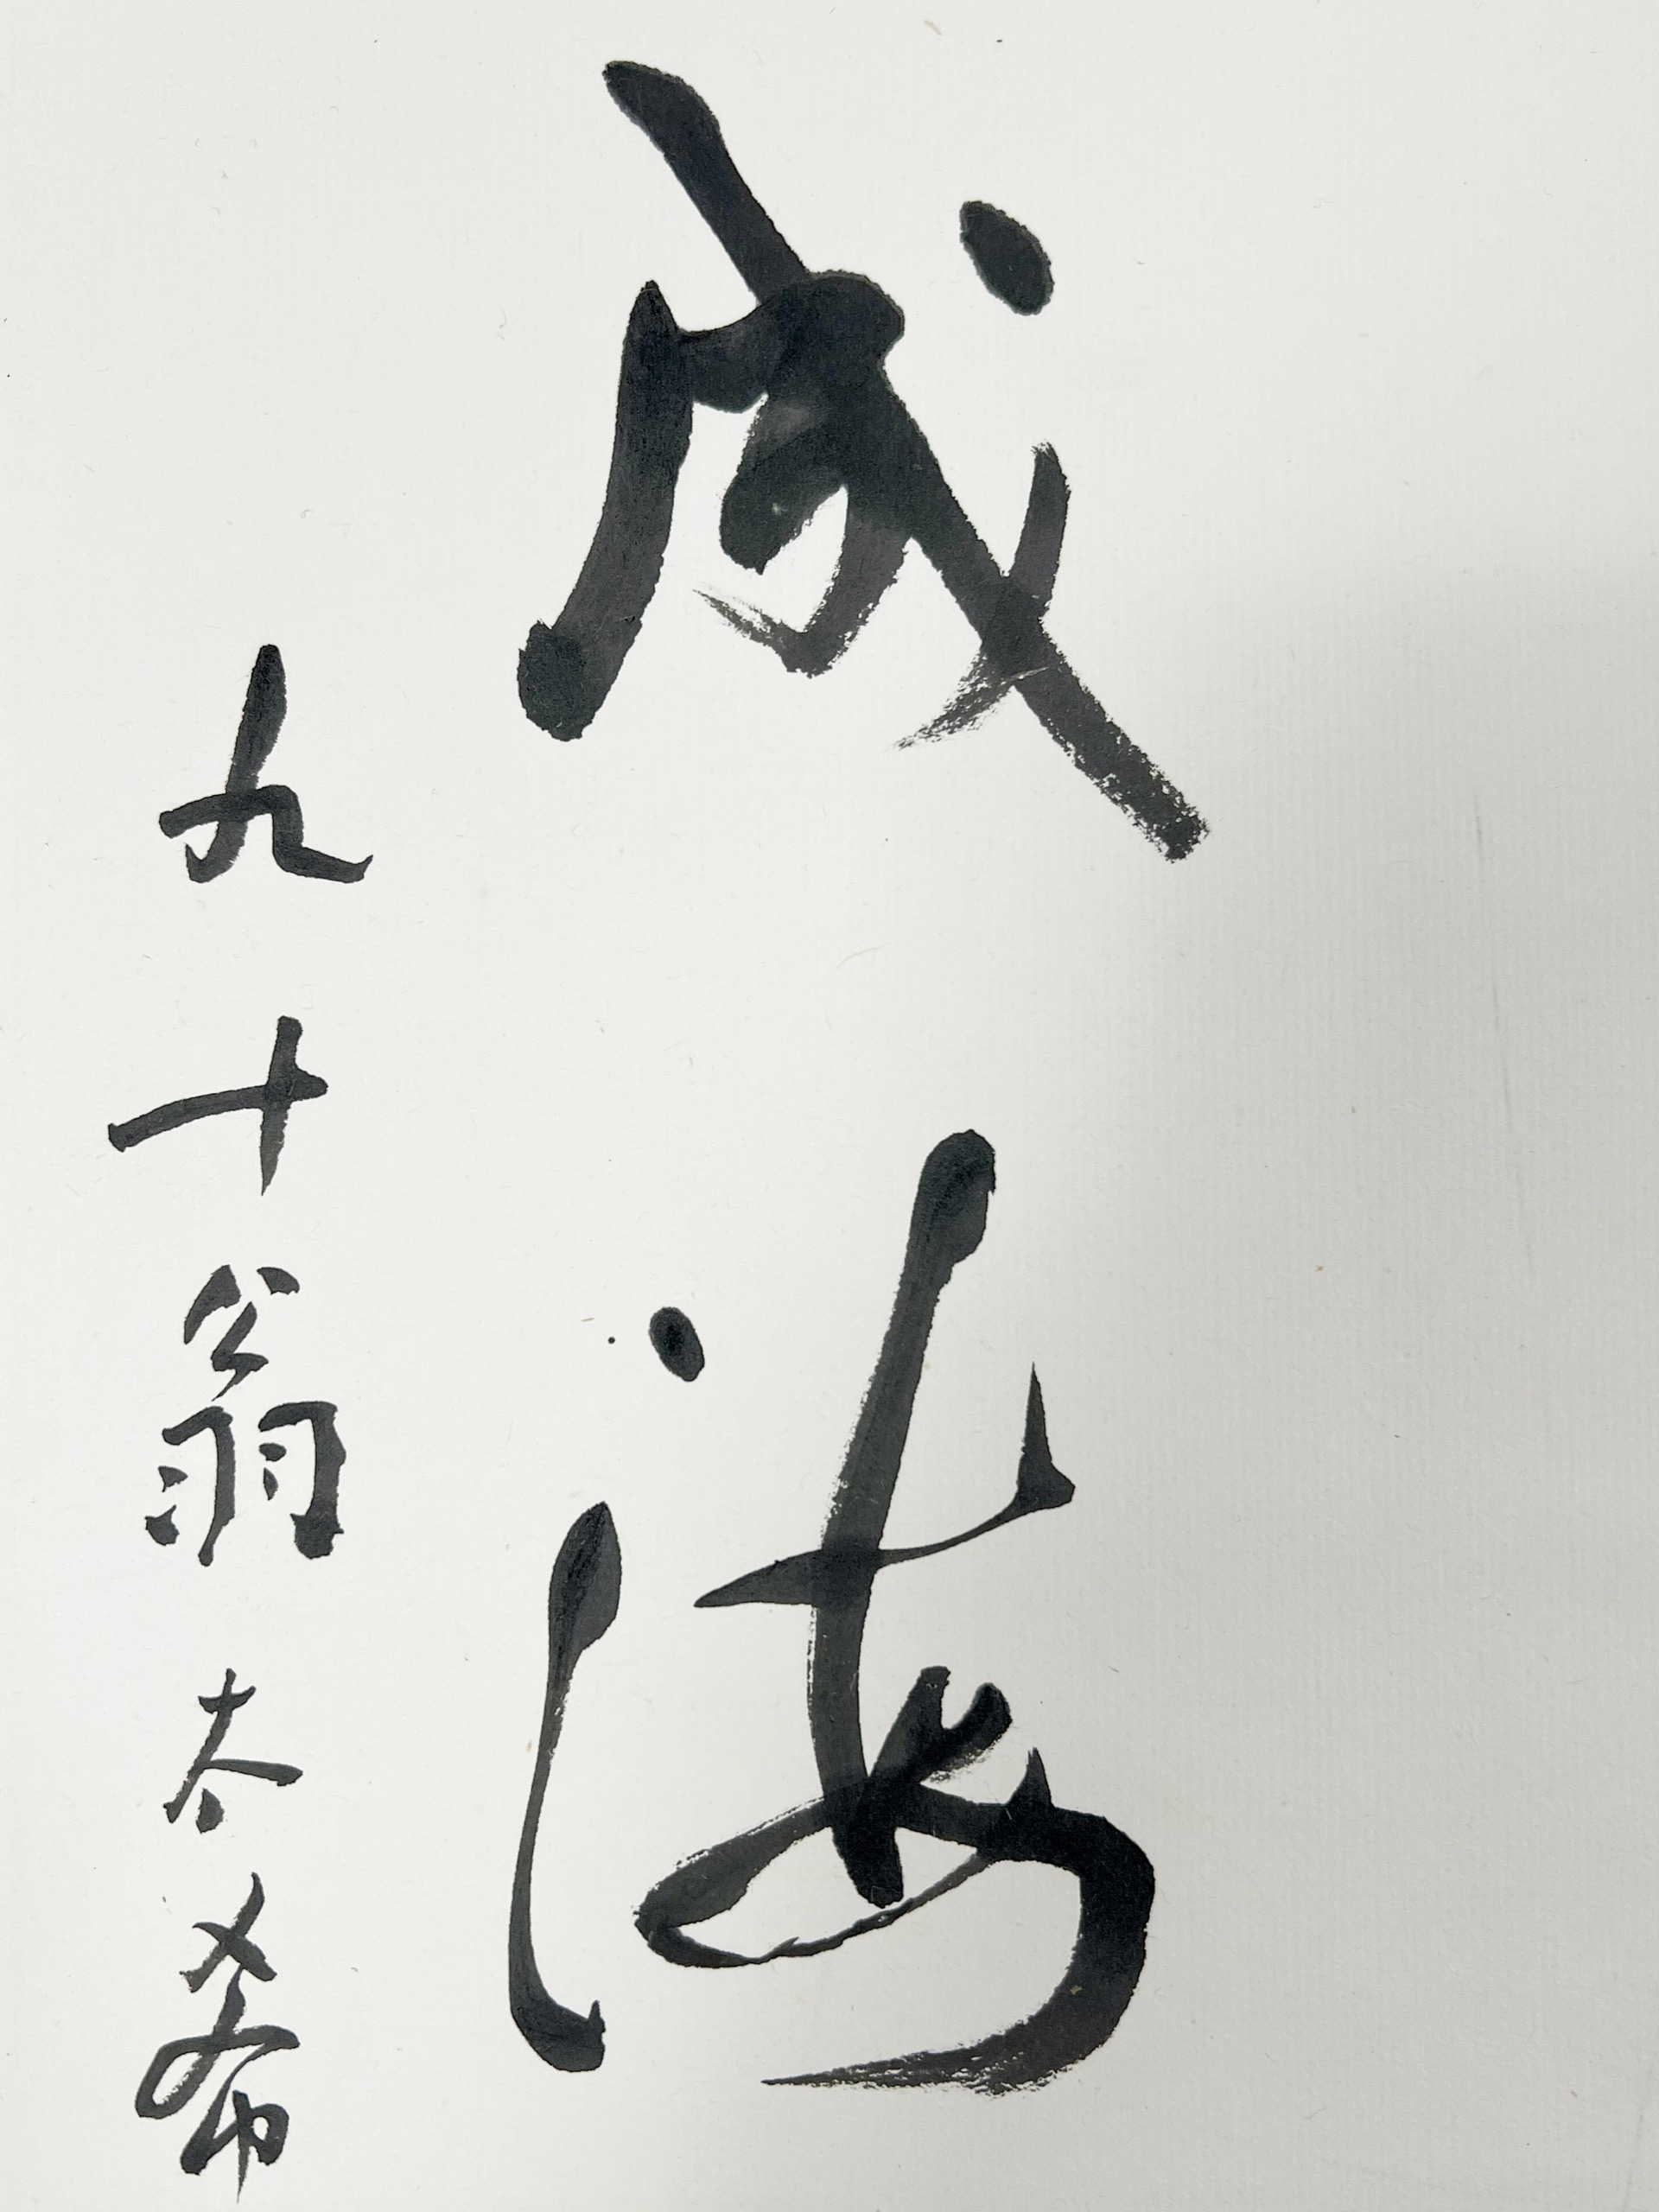 成海
九十翁太希